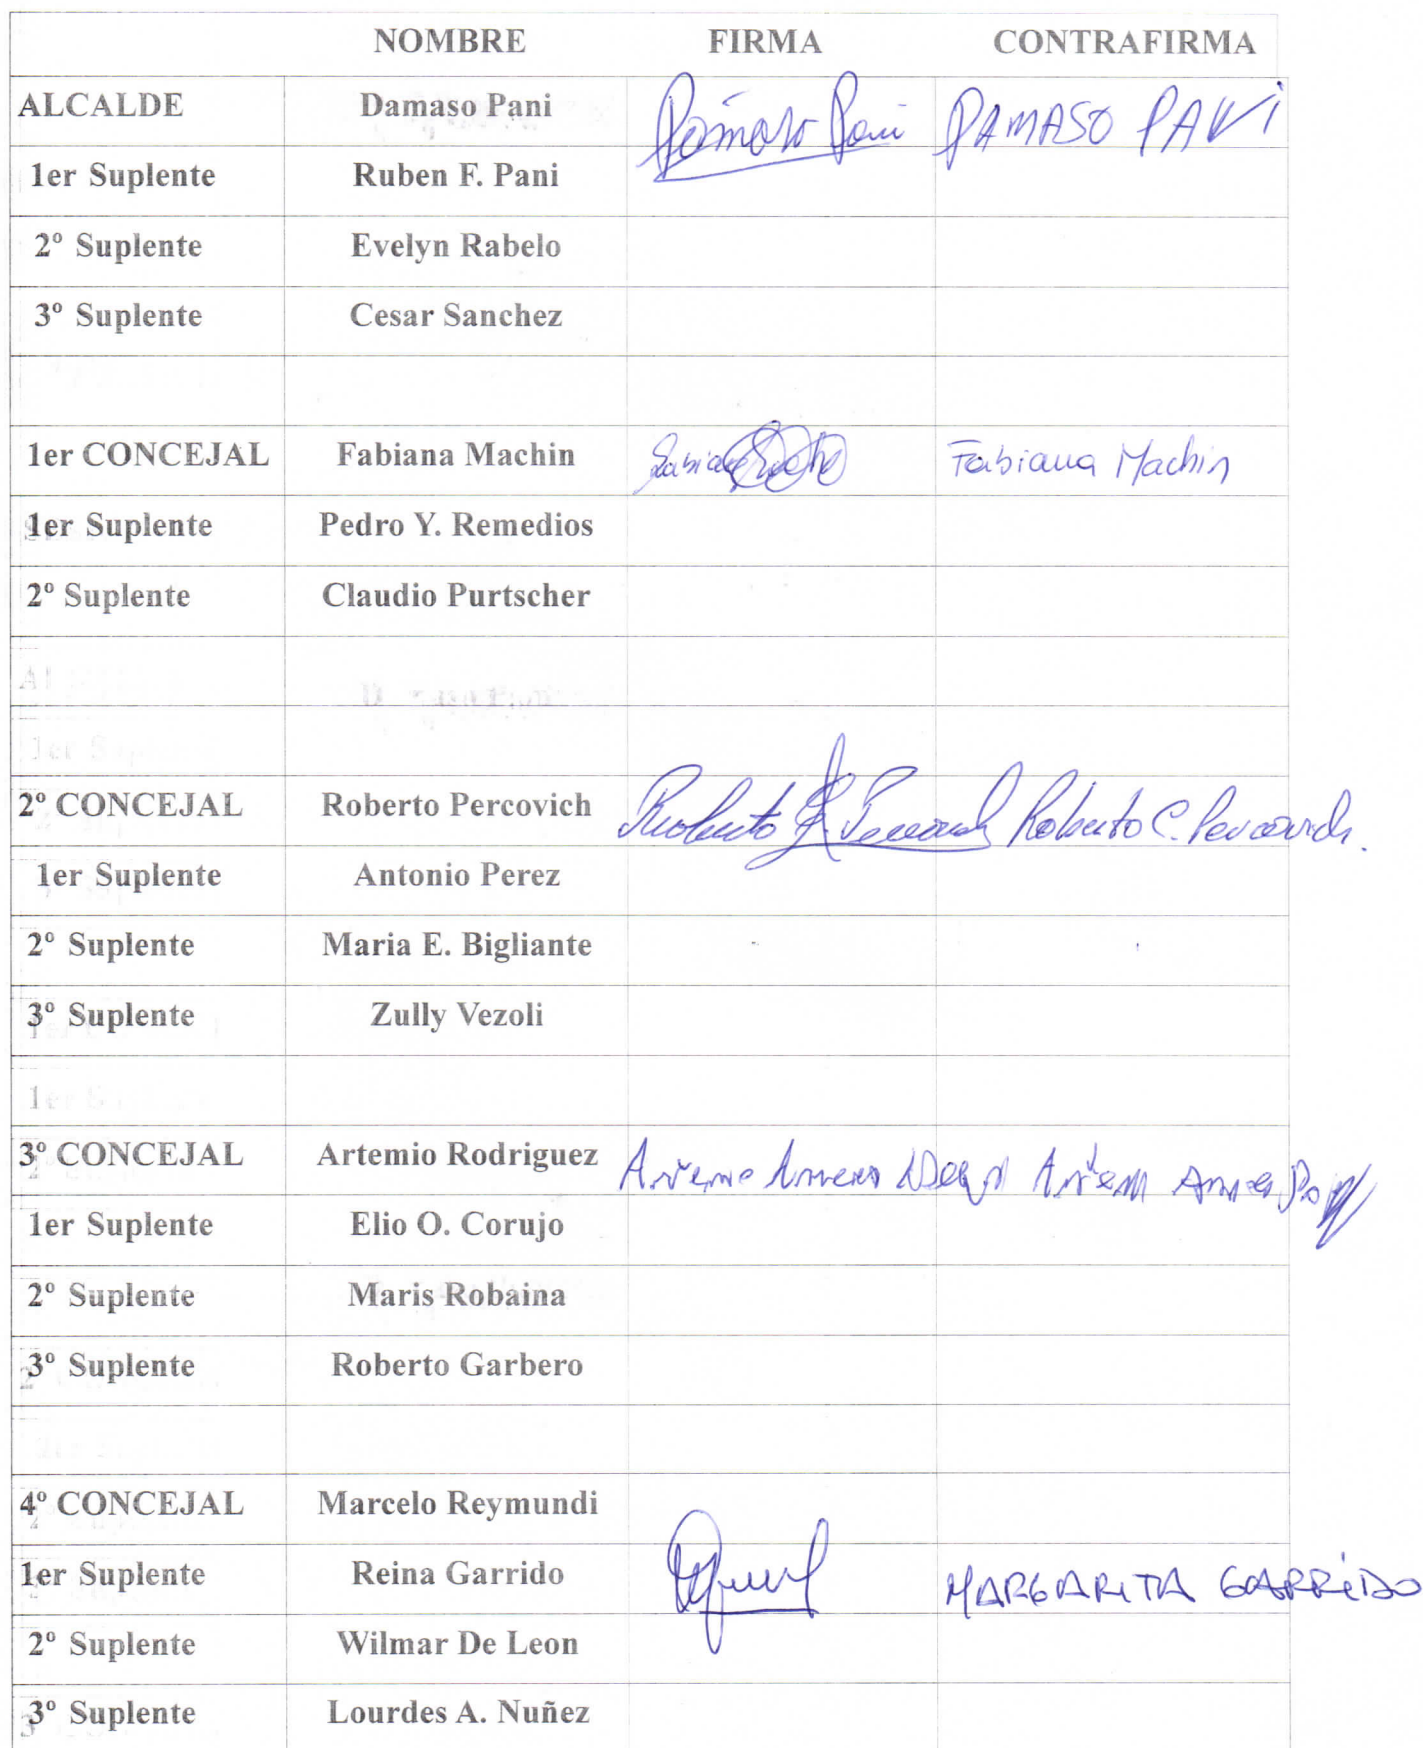 NOMBRE FIRMA CONTRAFIRMA
ALCALDE Damaso Pani Dámaso Pani DAMASO PANI
1er Suplente Ruben F. Pani
2º Suplente Evelyn Rabelo
3º Suplente Cesar Sanchez
1er CONCEJAL Fabiana Machin Fabiana Machin
1er Suplente Pedro Y. Remedios
2º Suplente Claudio Purtscher
2º CONCEJAL Roberto Percovich Roberto Roberto C. Percovich.
1er Suplente Antonio Perez
2º Suplente Maria E. Bigliante
3º Suplente Zully Vezoli
3º CONCEJAL Artemio Rodriguez
1er Suplente Elio O. Corujo
2º Suplente Maris Robaina
3º Suplente Roberto Garbero
4º CONCEJAL Marcelo Reymundi
1er Suplente Reina Garrido MARGARITA GARRIDO
2º Suplente Wilmar De Leon
3º Suplente Lourdes A. Nuñez